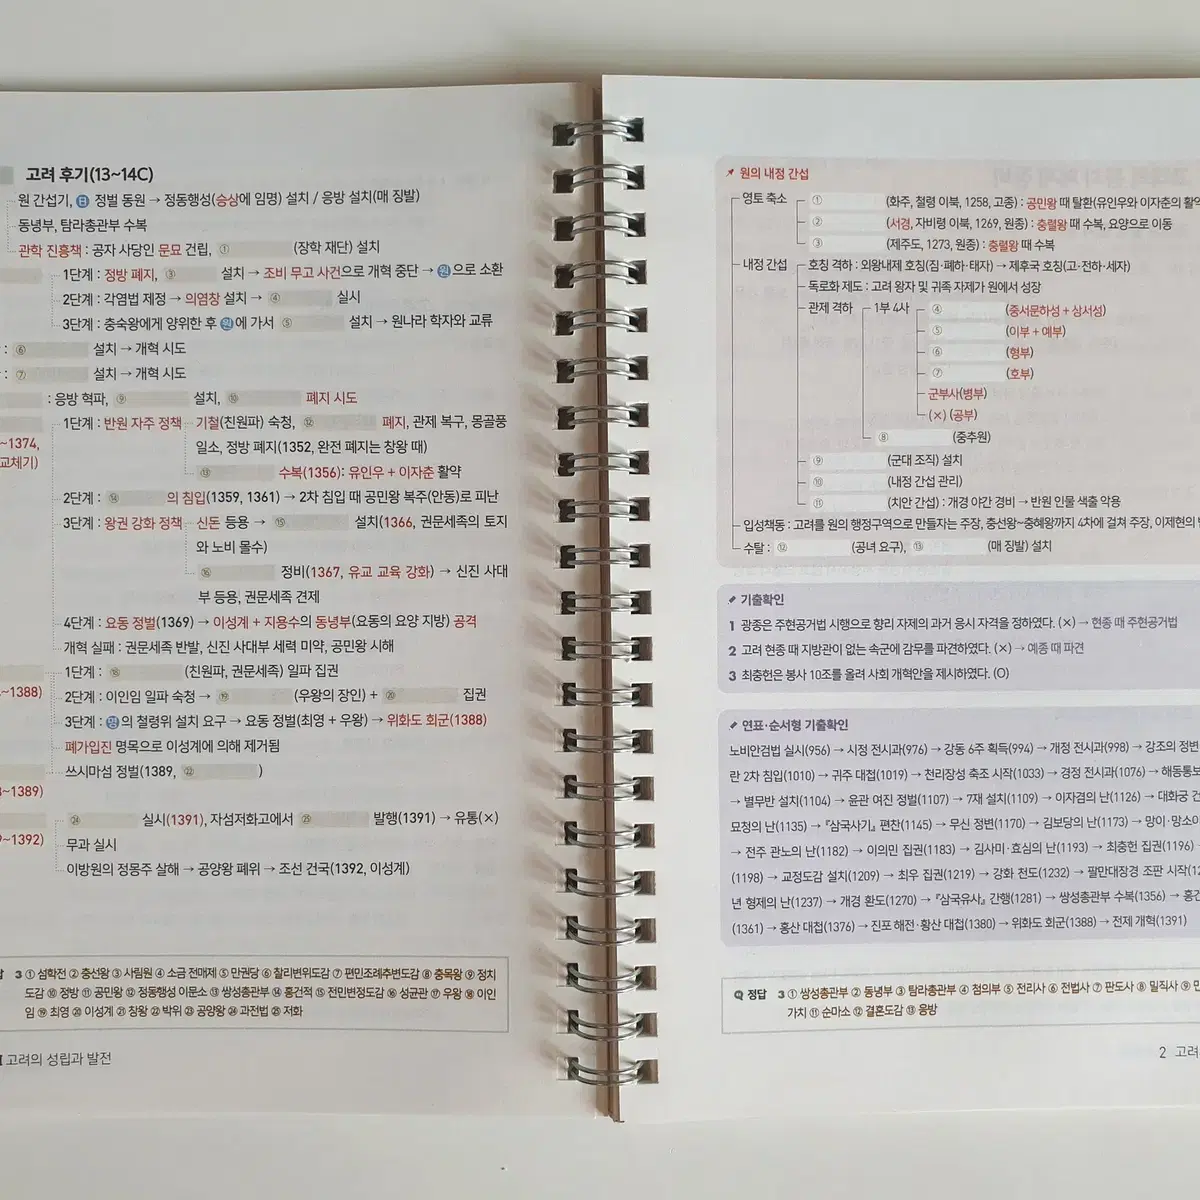 고려 후기(13~14C)
원 간섭기, 日 정벌 동원 → 정동행성(승상에 임명) 설치 / 응방 설치(매 징발)
동녕부, 탐라총관부 수복
관학 진흥책 : 공자 사당인 문묘 건립, ① (장학 재단) 설치
1단계 : 정방 폐지, ③ 설치 → 조비 무고 사건으로 개혁 중단 → 원으로 소환
2단계 : 각염법 제정 → 의염창 설치 → ④ 실시
3단계 : 충숙왕에게 양위한 후 원에 가서 ⑤ 설치 → 원나라 학자와 교류
: ⑥ 설치 → 개혁 시도
: ⑦ 설치 → 개혁 시도
: 응방 혁파, ⑨ 설치, ⑩ 폐지 시도
~1374,
교체기)
1단계 : 반원 자주 정책 기철(친원파) 숙청, ⑫ 폐지, 관제 복구, 몽골풍
일소, 정방 폐지(1352, 완전 폐지는 창왕 때)
⑬ 수복(1356): 유인우 + 이자춘 활약
2단계 : ⑭ 의 침입(1359, 1361) → 2차 침입 때 공민왕 복주(안동)로 피난
3단계 : 왕권 강화 정책 신돈 등용 → ⑮ 설치(1366, 권문세족의 토지
와 노비 몰수)
⑯ 정비(1367, 유교 교육 강화) → 신진 사대
부 등용, 권문세족 견제
4단계 : 요동 정벌(1369) → 이성계 + 지용수의 동녕부(요동의 요양 지방) 공격
개혁 실패 : 권문세족 반발, 신진 사대부 세력 미약, 공민왕 시해
~1388)
1단계 : ⑱ (친원파, 권문세족) 일파 집권
2단계 : 이인임 일파 숙청 → ⑲ (우왕의 장인) + ⑳ 집권
3단계 : 명의 철령위 설치 요구 → 요동 정벌(최영 + 우왕) → 위화도 회군(1388)
폐가입진 명목으로 이성계에 의해 제거됨
쓰시마섬 정벌(1389, ㉒ )
~1389)
~1392)
㉔ 실시(1391), 자섬저화고에서 ㉕ 발행(1391) → 유통(×)
무과 실시
이방원의 정몽주 살해 → 공양왕 폐위 → 조선 건국(1392, 이성계)
답 3 ① 섬학전 ② 충선왕 ③ 사림원 ④ 소금 전매제 ⑤ 만권당 ⑥ 찰리변위도감 ⑦ 편민조례추변도감 ⑧ 충목왕 ⑨ 정치
도감 ⑩ 정방 ⑪ 공민왕 ⑫ 정동행성 이문소 ⑬ 쌍성총관부 ⑭ 홍건적 ⑮ 전민변정도감 ⑯ 성균관 ⑰ 우왕 ⑱ 이인
임 ⑲ 최영 ⑳ 이성계 ㉑ 창왕 ㉒ 박위 ㉓ 공양왕 ㉔ 과전법 ㉕ 저화
고려의 성립과 발전
원의 내정 간섭
영토 축소 ① (화주, 철령 이북, 1258, 고종) : 공민왕 때 탈환(유인우와 이자춘의 활약
② (서경, 자비령 이북, 1269, 원종) : 충렬왕 때 수복, 요양으로 이동
③ (제주도, 1273, 원종) : 충렬왕 때 수복
내정 간섭 호칭 격하 : 외왕내제 호칭(짐·폐하·태자) → 제후국 호칭(고·전하·세자)
독로화 제도 : 고려 왕자 및 귀족 자제가 원에서 성장
관제 격하 1부 4사 ④ (중서문하성 + 상서성)
⑤ (이부 + 예부)
⑥ (형부)
⑦ (호부)
군부사(병부)
(×) (공부)
⑧ (중추원)
⑨ (군대 조직) 설치
⑩ (내정 간섭 관리)
⑪ (치안 간섭) : 개경 야간 경비 → 반원 인물 색출 악용
입성책동 : 고려를 원의 행정구역으로 만들자는 주장, 충선왕~충혜왕까지 4차에 걸쳐 주장, 이제현의
수탈 : ⑫ (공녀 요구), ⑬ (매 징발) 설치
기출확인
1 광종은 주현공거법 시행으로 향리 자제의 과거 응시 자격을 정하였다. (×) → 현종 때 주현공거법
2 고려 현종 때 지방관이 없는 속군에 감무를 파견하였다. (×) → 예종 때 파견
3 최충헌은 봉사 10조를 올려 사회 개혁안을 제시하였다. (O)
연표·순서형 기출확인
노비안검법 실시(956) → 시정 전시과(976) → 강동 6주 획득(994) → 개정 전시과(998) → 강조의 정변
란 2차 침입(1010) → 귀주 대첩(1019) → 천리장성 축조 시작(1033) → 경정 전시과(1076) → 해동통보
→ 별무반 설치(1104) → 윤관 여진 정벌(1107) → 7재 설치(1109) → 이자겸의 난(1126) → 대화궁 건
묘청의 난(1135) → 『삼국사기』 편찬(1145) → 무신 정변(1170) → 김보당의 난(1173) → 망이·망소이
→ 전주 관노의 난(1182) → 이의민 집권(1183) → 김사미·효심의 난(1193) → 최충헌 집권(1196)
(1198) → 교정도감 설치(1209) → 최우 집권(1219) → 강화 천도(1232) → 팔만대장경 조판 시작(12
년 형제의 난(1237) → 개경 환도(1270) → 『삼국유사』 간행(1281) → 쌍성총관부 수복(1356) → 홍건
(1361) → 홍산 대첩(1376) → 진포 해전·황산 대첩(1380) → 위화도 회군(1388) → 전제 개혁(1391)
정답 3 ① 쌍성총관부 ② 동녕부 ③ 탐라총관부 ④ 첨의부 ⑤ 전리사 ⑥ 전법사 ⑦ 판도사 ⑧ 밀직사 ⑨ 만
가치 ⑪ 순마소 ⑫ 결혼도감 ⑬ 응방
2 고려